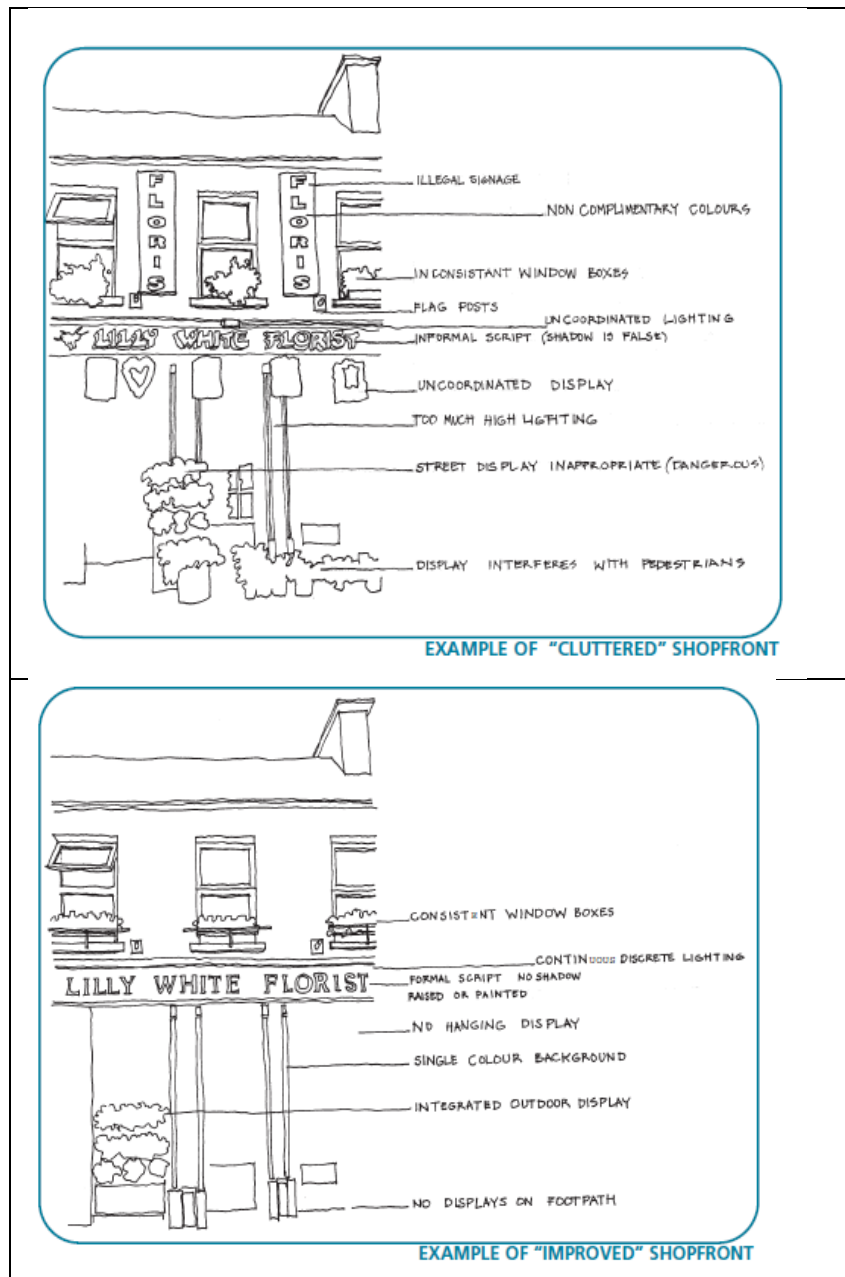 FLORIS
FLORIS
ILLEGAL SIGNAGE
NON COMPLIMENTARY COLOURS
INCONSISTANT WINDOW BOXES
FLAG POSTS
UNCOORDINATED LIGHTING
LILLY WHITE FLORIST
INFORMAL SCRIPT (SHADOW IS FALSE)
UNCOORDINATED DISPLAY
TOO MUCH HIGH LIGHTING
STREET DISPLAY INAPPROPRIATE (DANGEROUS)
DISPLAY INTERFERES WITH PEDESTRIANS
EXAMPLE OF "CLUTTERED" SHOPFRONT
CONSISTENT WINDOW BOXES
CONTINUOUS DISCRETE LIGHTING
LILLY WHITE FLORIST
FORMAL SCRIPT NO SHADOW
RAISED OR PAINTED
NO HANGING DISPLAY
SINGLE COLOUR BACKGROUND
INTEGRATED OUTDOOR DISPLAY
NO DISPLAYS ON FOOTPATH
EXAMPLE OF "IMPROVED" SHOPFRONT